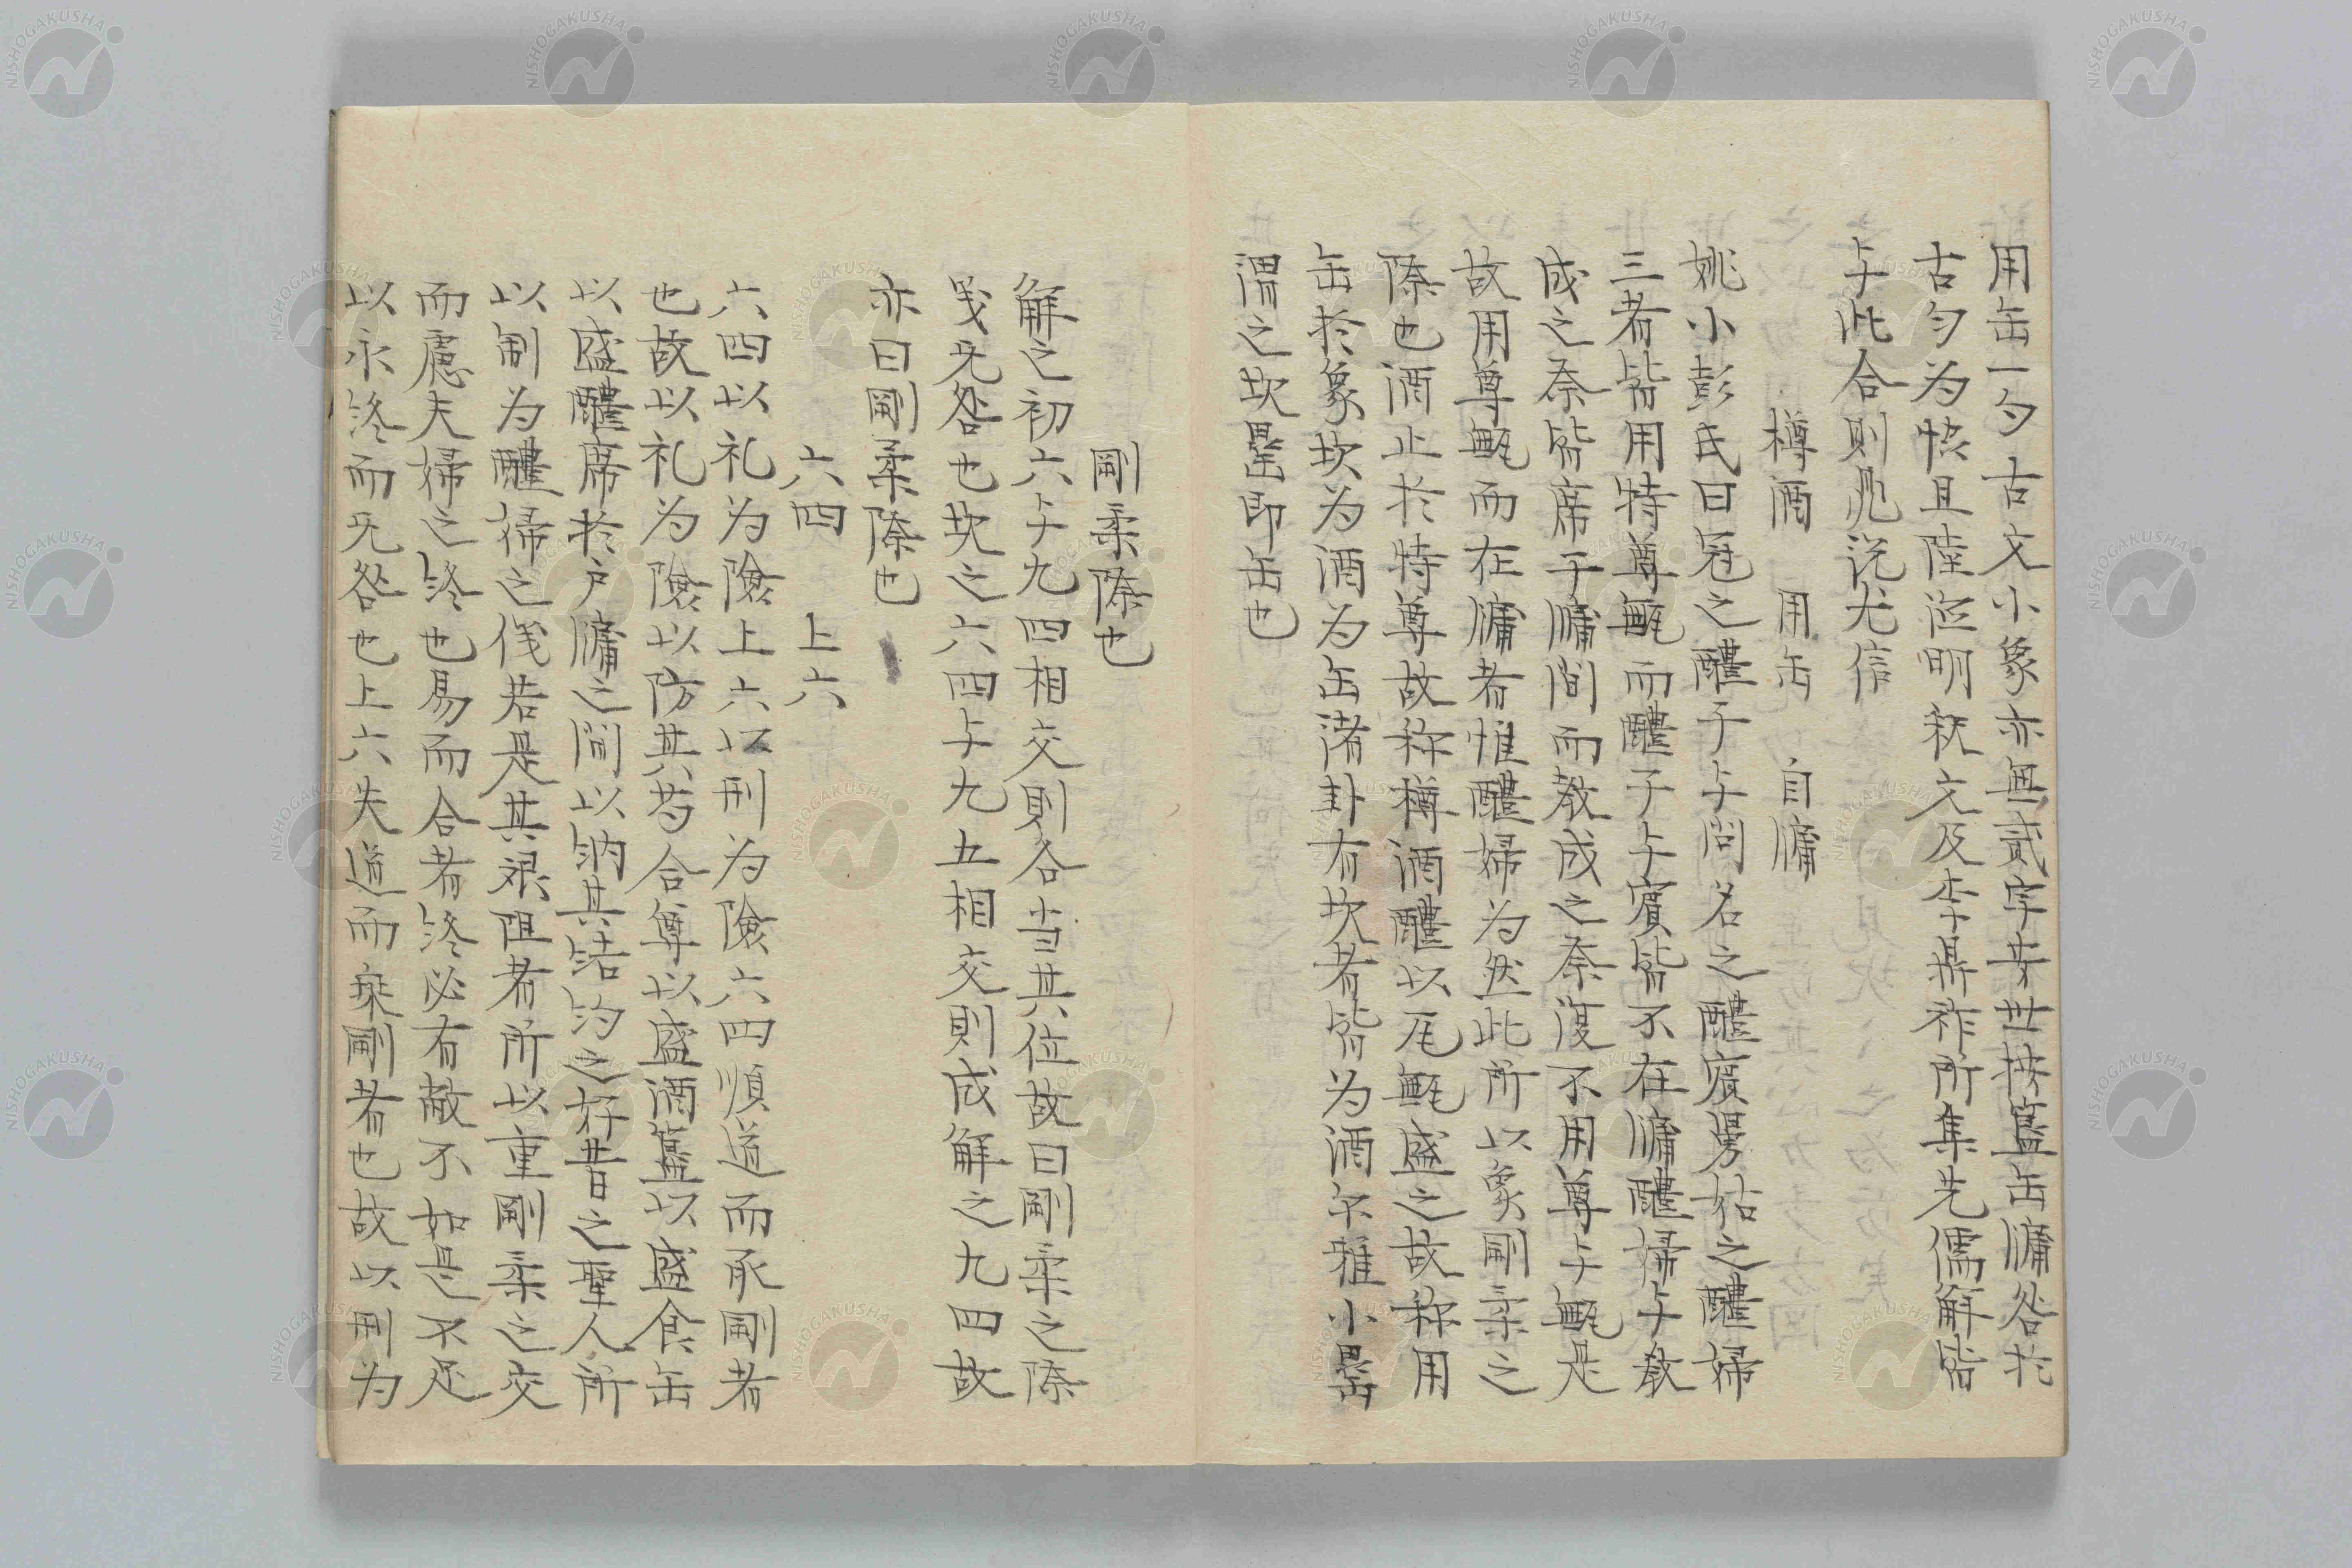 用缶一句古文小象亦無貳字晁世按簋缶牖咎於
古匀为恊且陸德明釈文及李鼎祚所集先儒解皆
与此合則晁说尤信
樽酒 用缶 自牖
姚小彭氏曰冠之醴子与问名之醴賓舅姑之醴婦
三者皆用特尊甒而醴子与賓皆不在牖醴婦与教
成之奈皆席于牖间而教成之奈復不用尊与甒是
故用尊甒而在牖者惟醴婦为然此所以象剛柔之
際也酒止於特尊故称樽酒醴以瓦甒盛之故称用
缶於象坎为酒为缶诸卦有坎者皆为酒尔雅小罍
谓之坎罍即缶也
剛柔際也
解之初六与九四相交則各当其位故曰剛柔之際
義无咎也坎之六四与九五相交則成解之九四故
亦曰剛柔際也
六四 上六
六四以礼为險上六以刑为險六四順道而承剛者
也故以礼为險以防其苟合尊以盛酒簋以盛食缶
以盛醴席於户牖之間以纳其结约之好昔之聖人所
以制为醴婦之俴若是其艰阻者所以重剛柔之交
而慮夫婦之终也易而合者终必有敝不如是不足
以永终而无咎也上六失道而乗剛者也故以刑为